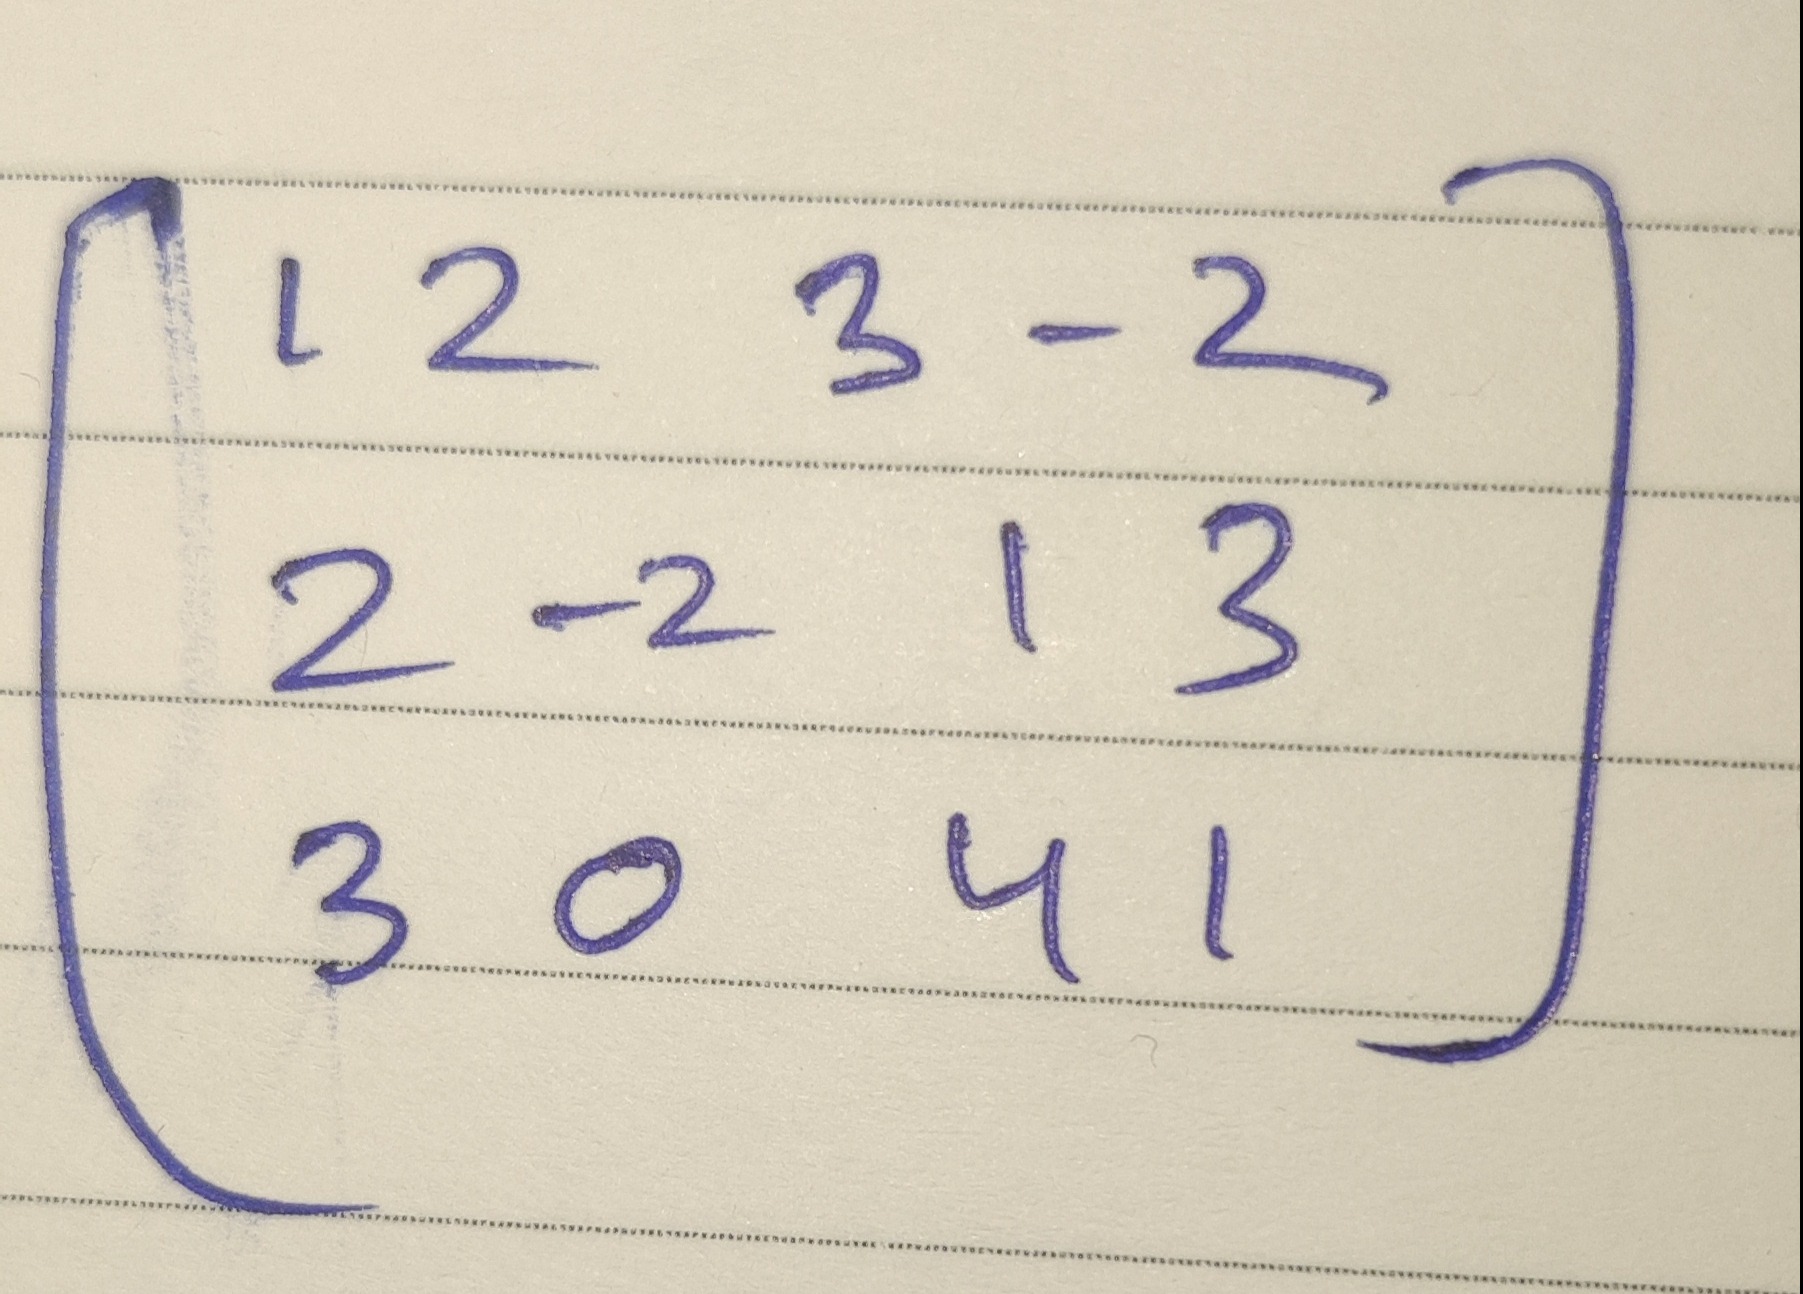 1 2 3 -2
2 -2 1 3
3 0 4 1